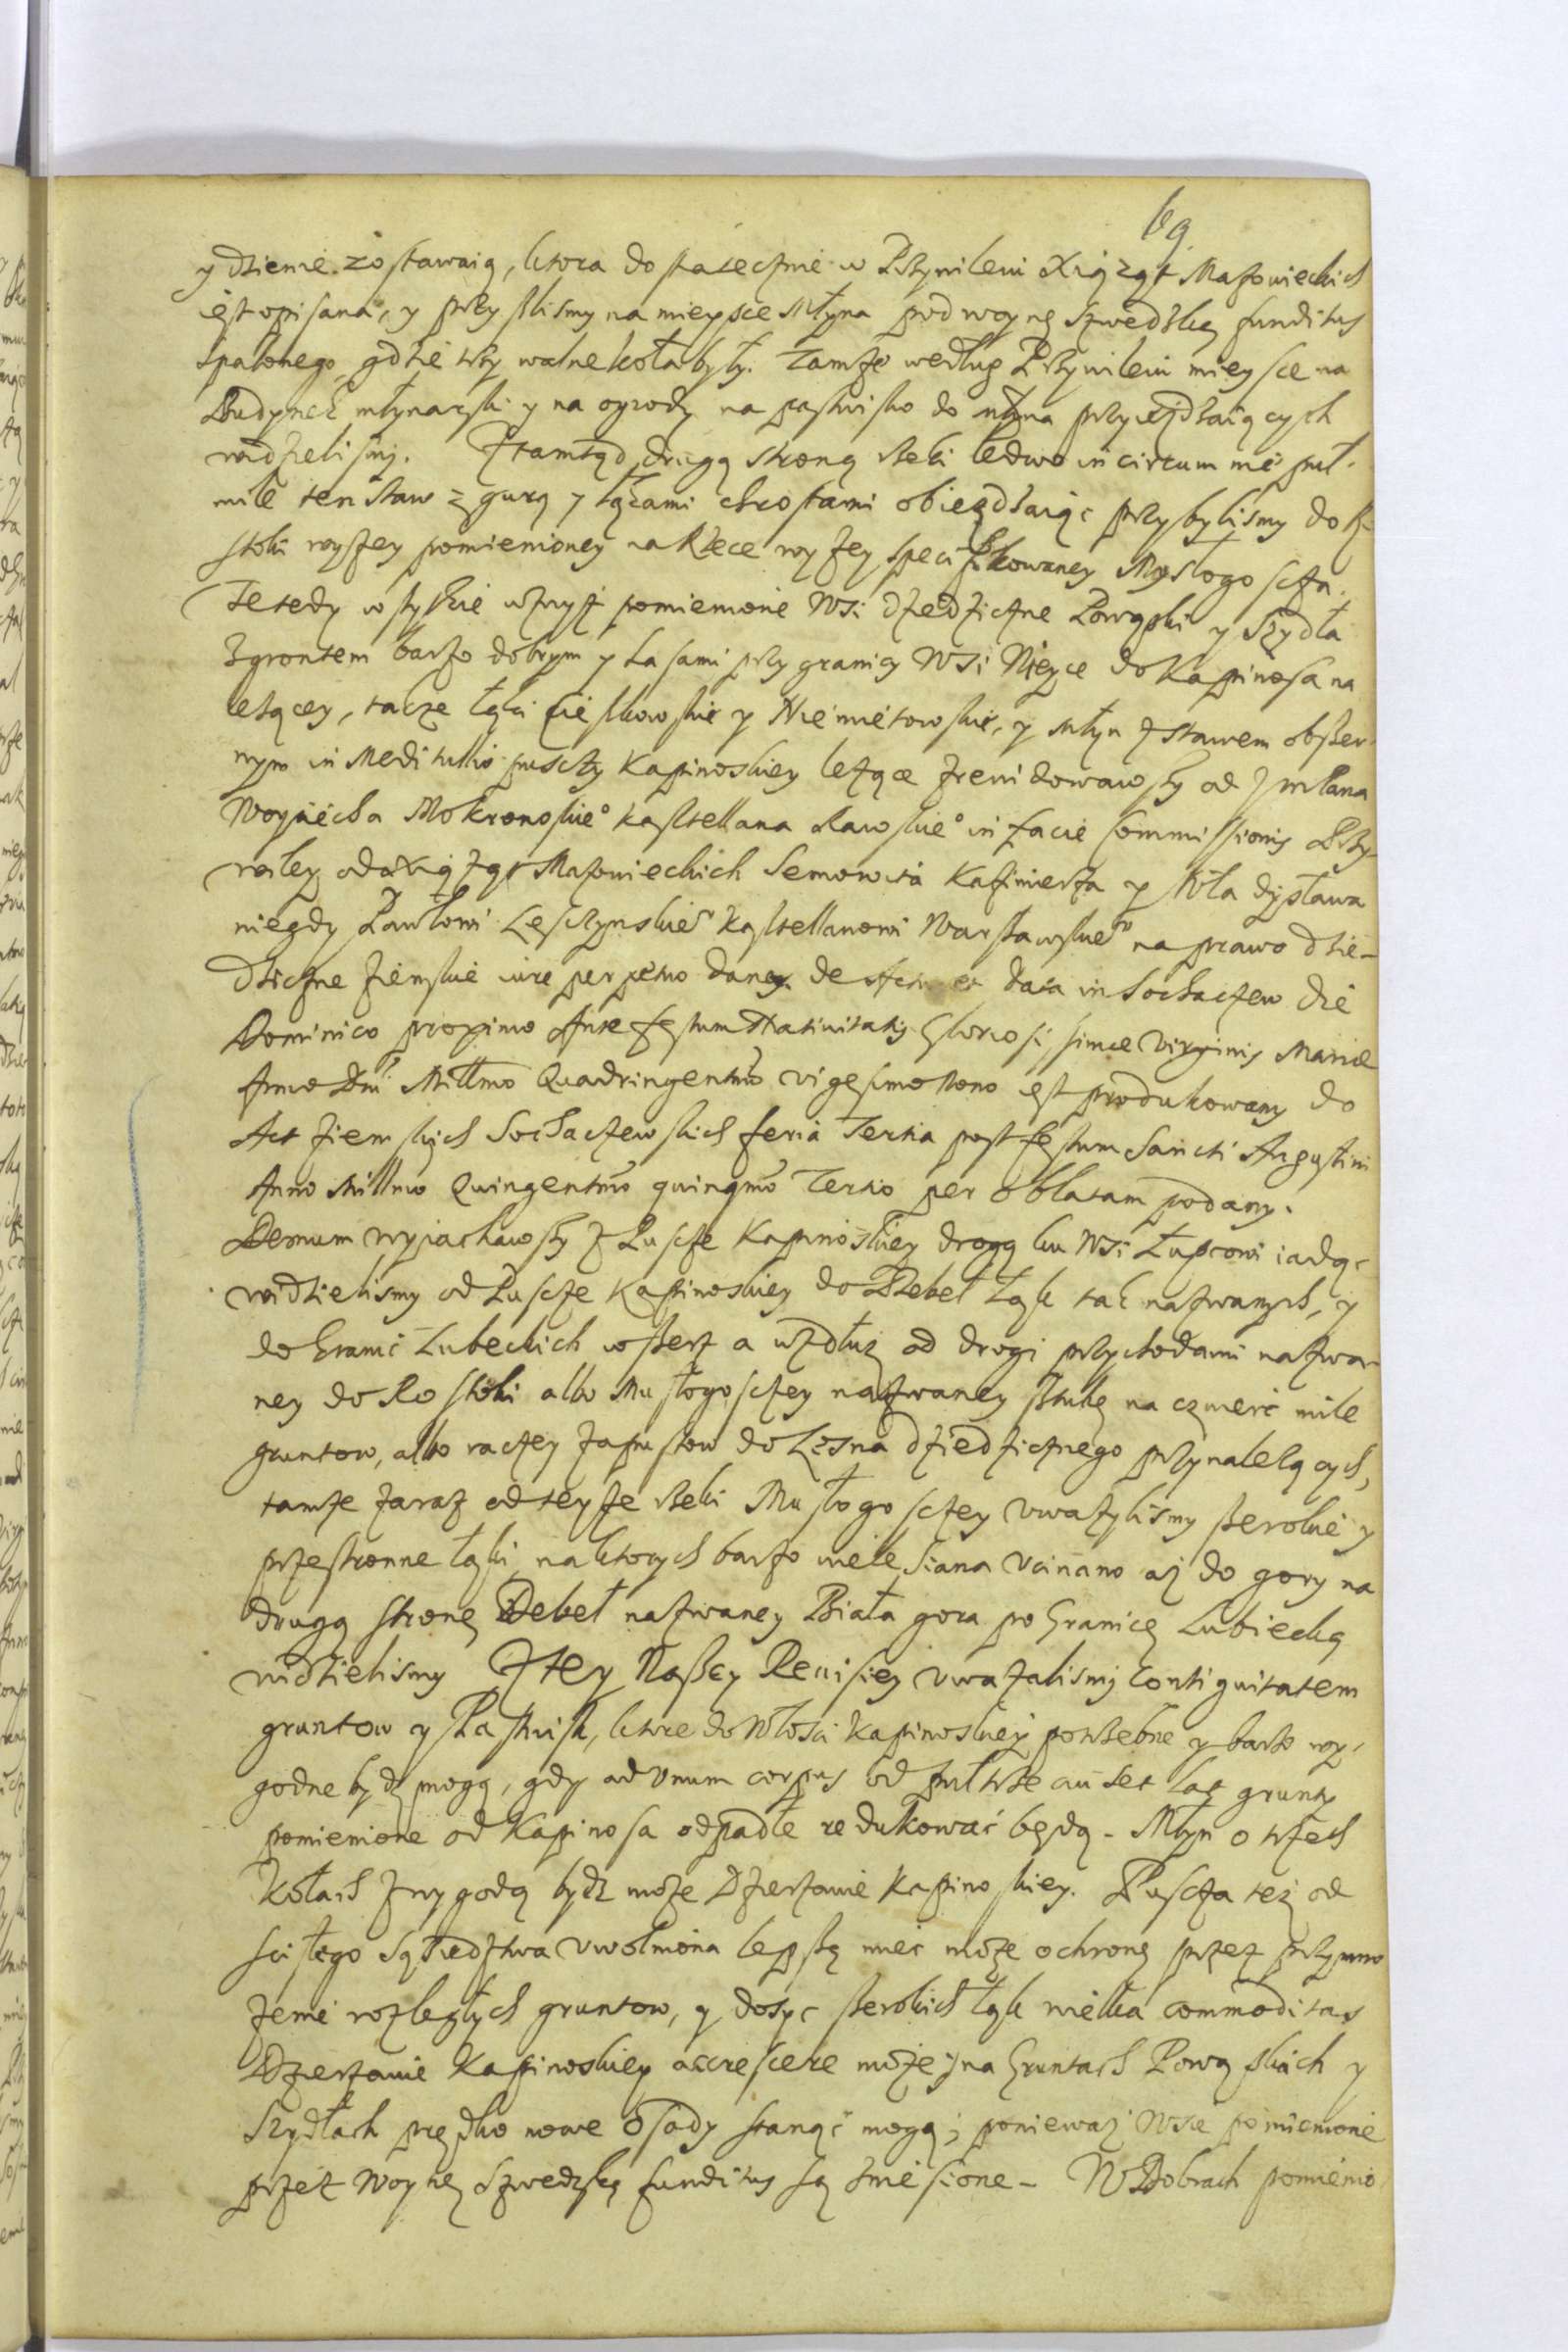 69
y dzienie zostawaią, ktora dostatecznie w Przywileiu Xiążąt Mazowieckich
iest opisana, y przyslismy na mieysce Młyna pod woynę Szwedzką funditus
spalonego, gdzie trzy walne koła były. Tamże według Przywileiu mieysce na
Budynek młynarski y na ogrody na pastwisko do młyna przyiezdzaiących
widzielismy. Ztamtąd drugą stroną rzeki ledwo in circum nie puł
mile ten staw z gurą y łąkami chrostami obiezdzaiąc przybylismy do R
stoki wyszey pomienioney na Rzece wyszey specifikowaney
Te tedy wszytkie wzwyż pomienione Wsi dziedziczne Powązki y Szydła
z grontem barzo dobrym y Lasami przy granicy Wsi do Kapinosa na
leżącey, także łąki y Niemietowskie, y młyn z stawem obszer
nym in Meditullio puszczy Kapinoskiey leżące zrewidowawszy od Jmśc Pana
Woyciecha Mokronoskie° Kasztellana Rawskie° in facie Commissionis Przy
wiley od Xiążąt Mazowieckich Semowita Kazimierza y Władysława
niegdy Pawłowi Lesczynskie° Kasztellanowi Warszawskie° na prawo dzie-
dziczne ziemskie iure perpetuo dany de Actu et data in Sochaczew die
Dominico proximo Ante festum Nativitatis Gloriosissimae Virginis Mariae
Anno Dni Millmo Quadringentmo vigesimo Nono iest produkowany do
Act ziemskich Sochaczewskich feria Tertia post festum Sancti Augustini
Anno Millmo Quingentmo quinqmo Tertio per oblatam podany.
Demum wyiachawszy z Puscze Kapinoskiey drogą ku Wsi iadąc
widzielismy od Puscze Kapinoskiey do Debeł Łąk tak nazwanych, y
do Granic Lubeckich wszerz a wzdłuz od drogi przychodami nazwa-
ney do Rostoki albo Musłogosczey nazwaney sztukę na czwierc mile
gruntow, albo raczey zapustow do Lesna dziedzicznego przynalezących,
tamże zaraz od teyże rzeki Musłogosczey uważylismy szerokie y
przestronne łąki na ktorych barzo wiele Siana ucinano aż do gory na
drugą stronę Debeł nazwaney Biała gora po Granicę Lubiecką
widzielismy Z tey Naszey Rewisiey uważalismy Contiguitatem
gruntow y Pastwisk, ktore do Włosci Kapinoskiey potrzebne y barzo wy-
godne bydz mogą, gdy ad Unum corpus od pułtrzecia set lat grunty
pomienione od Kapinosa odpadłe redukować będą - Młyn o trzech
Kołach z wygodą bydz może Dzierżawie Kapinoskiey. Puscza też od
scisłego sąsiedztwa uwolniona lepszą mieć może ochronę przez przymno
żenie rozległych gruntow, y dosyc szerokich łąk wielka commoditas
Dzierżawie Kapinoskiey accrescere może, y na Gruntach Powązkich y
Szydłach prędko nowe Osady stanąć mogą; ponieważ Wsie pomienione
przez Woynę Szwedzką funditus są zniesione - W Dobrach pomienio